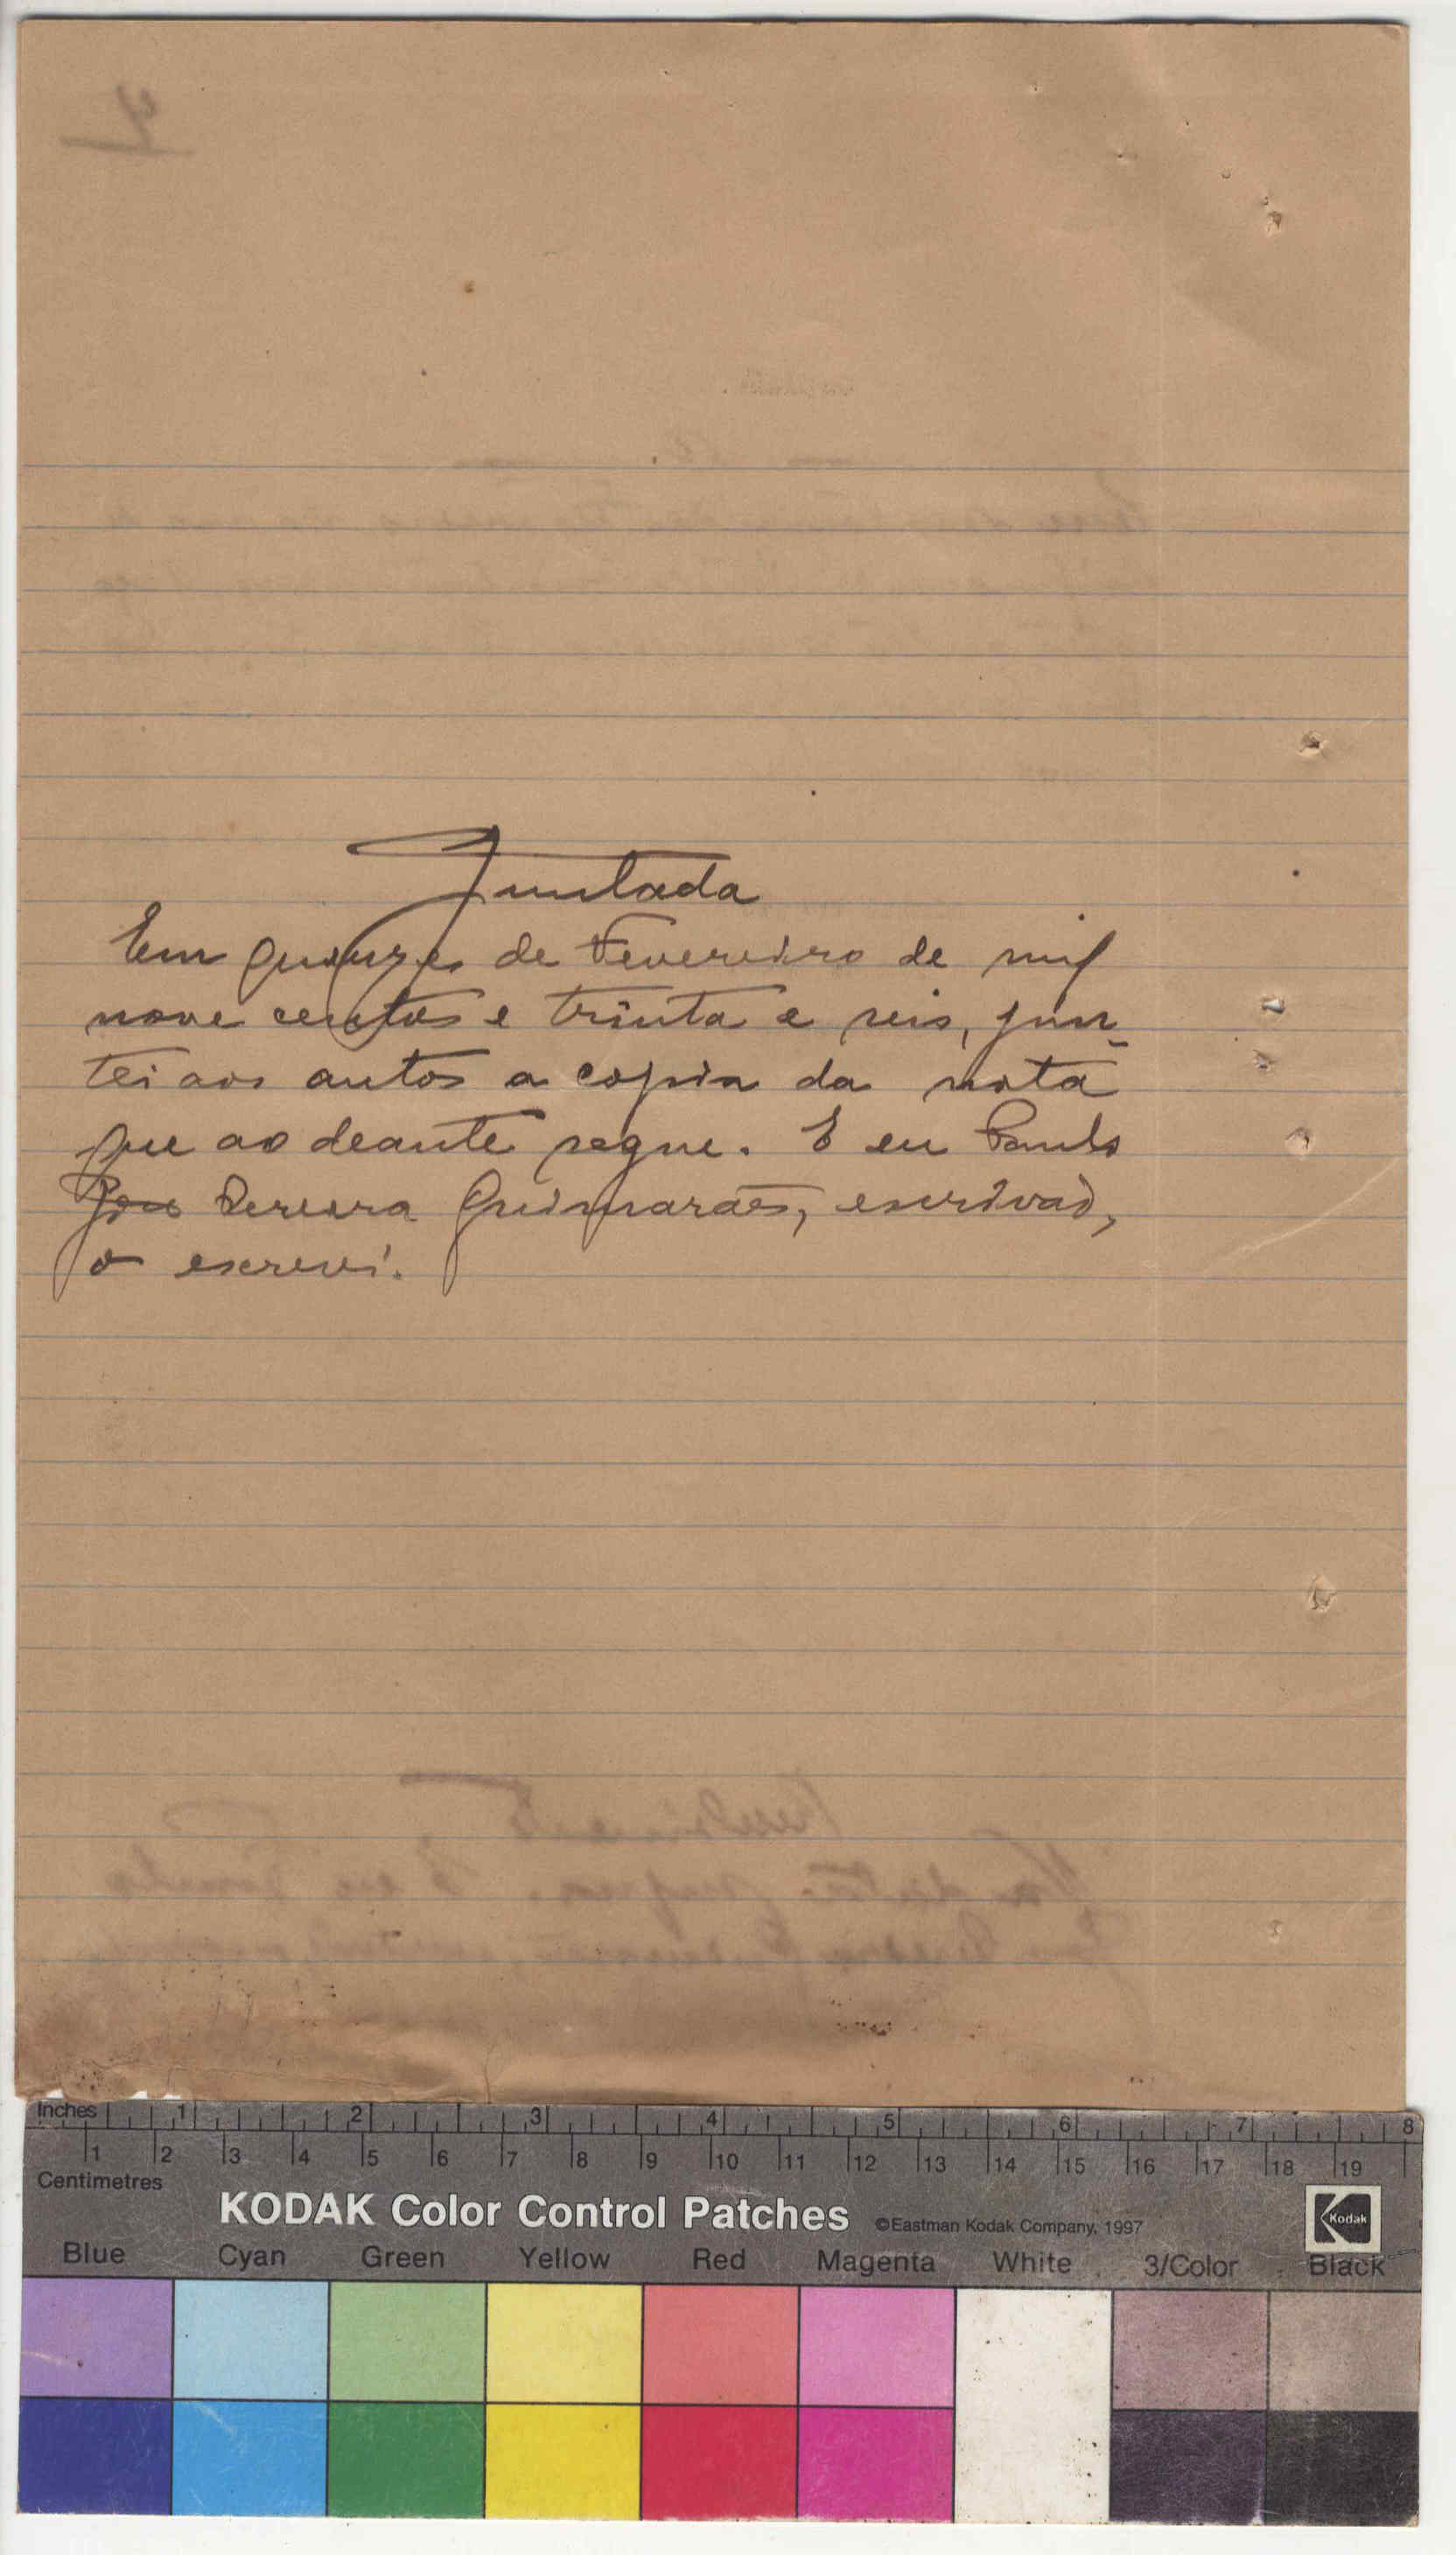 Juntada
Em quinze de Fevereiro de mil
nove centos e trinta e seis, jun-
tei aos autos a copia da nota
que ao deante segue. E eu Paulo
José Pereira Guimarães, escrivão,
o escrevi.
Inches 1 2 3 4 5 6 7 8
1 2 3 4 5 6 7 8 9 10 11 12 13 14 15 16 17 18 19
Centimetres
KODAK Color Control Patches ©Eastman Kodak Company, 1997 Kodak
Blue Cyan Green Yellow Red Magenta White 3/Color Black